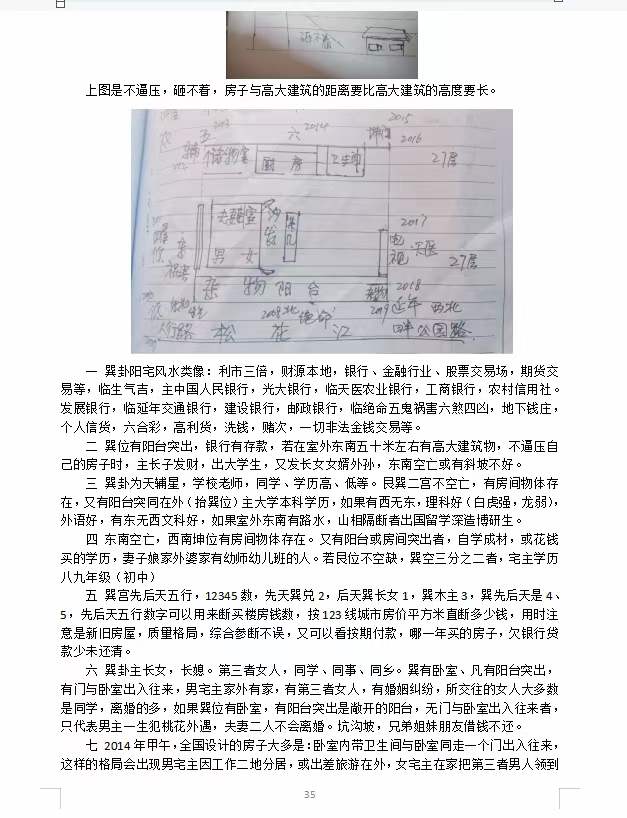 砸不着
上图是不逼压，砸不着，房子与高大建筑的距离要比高大建筑的高度要长。
六 2014
2015
2016
储物室
厨 房
卫生间
27层
2017
男 女
沙发
茶几
电视
27层
杂 物 阳 台
2018
2019
松 花 江
公园路
一 巽卦阳宅风水类像：利市三倍，财源本地，银行、金融行业、股票交易场，期货交
易等，临生气吉，主中国人民银行，光大银行，临天医农业银行，工商银行，农村信用社。
发展银行，临延年交通银行，建设银行，邮政银行，临绝命五鬼祸害六煞四凶，地下钱庄，
个人信货，六合彩，高利货，洗钱，赌次，一切非法金钱交易等。
二 巽位有阳台突出，银行有存款，若在室外东南五十米左右有高大建筑物，不逼压自
己的房子时，主长子发财，出大学生，又发长女女婿外孙，东南空亡或有斜坡不好。
三 巽卦为天辅星，学校老师，同学、学历高、低等。艮巽二宫不空亡，有房间物体存
在，又有阳台突同在外（抬巽位）主大学本科学历，如果有西无东，理科好（白虎强，龙弱），
外语好，有东无西文科好，如果室外东南有路水，山相隔断者出国留学深造博研生。
四 东南空亡，西南坤位有房间物体存在。又有阳台或房间突出者，自学成材，或花钱
买的学历，妻子娘家外婆家有幼师幼儿班的人。若艮位不空缺，巽空三分之二者，宅主学历
八九年级（初中）
五 巽宫先后天五行，12345 数，先天巽兑 2，后天巽长女 1，巽木主 3，巽先后天是 4、
5，先后天五行数字可以用来断买楼房钱数，按 123 线城市房价平方米直断多少钱，用时注
意是新旧房屋，质量格局，综合参断不误，又可以看按期付款，哪一年买的房子，欠银行贷
款少未还清。
六 巽卦主长女，长媳。第三者女人，同学、同事、同乡。巽有卧室、凡有阳台突出，
有门与卧室出入往来，男宅主家外有家，有第三者女人，有婚姻纠纷，所交往的女人大多数
是同学，离婚的多，如果巽位有卧室，有阳台突出是敞开的阳台，无门与卧室出入往来者，
只代表男主一生犯桃花外遇，夫妻二人不会离婚。坑沟坡，兄弟姐妹朋友借钱不还。
七 2014 年甲午，全国设计的房子大多是：卧室内带卫生间与卧室同走一个门出入往来，
这样的格局会出现男宅主因工作二地分居，或出差旅游在外，女宅主在家把第三者男人领到
35